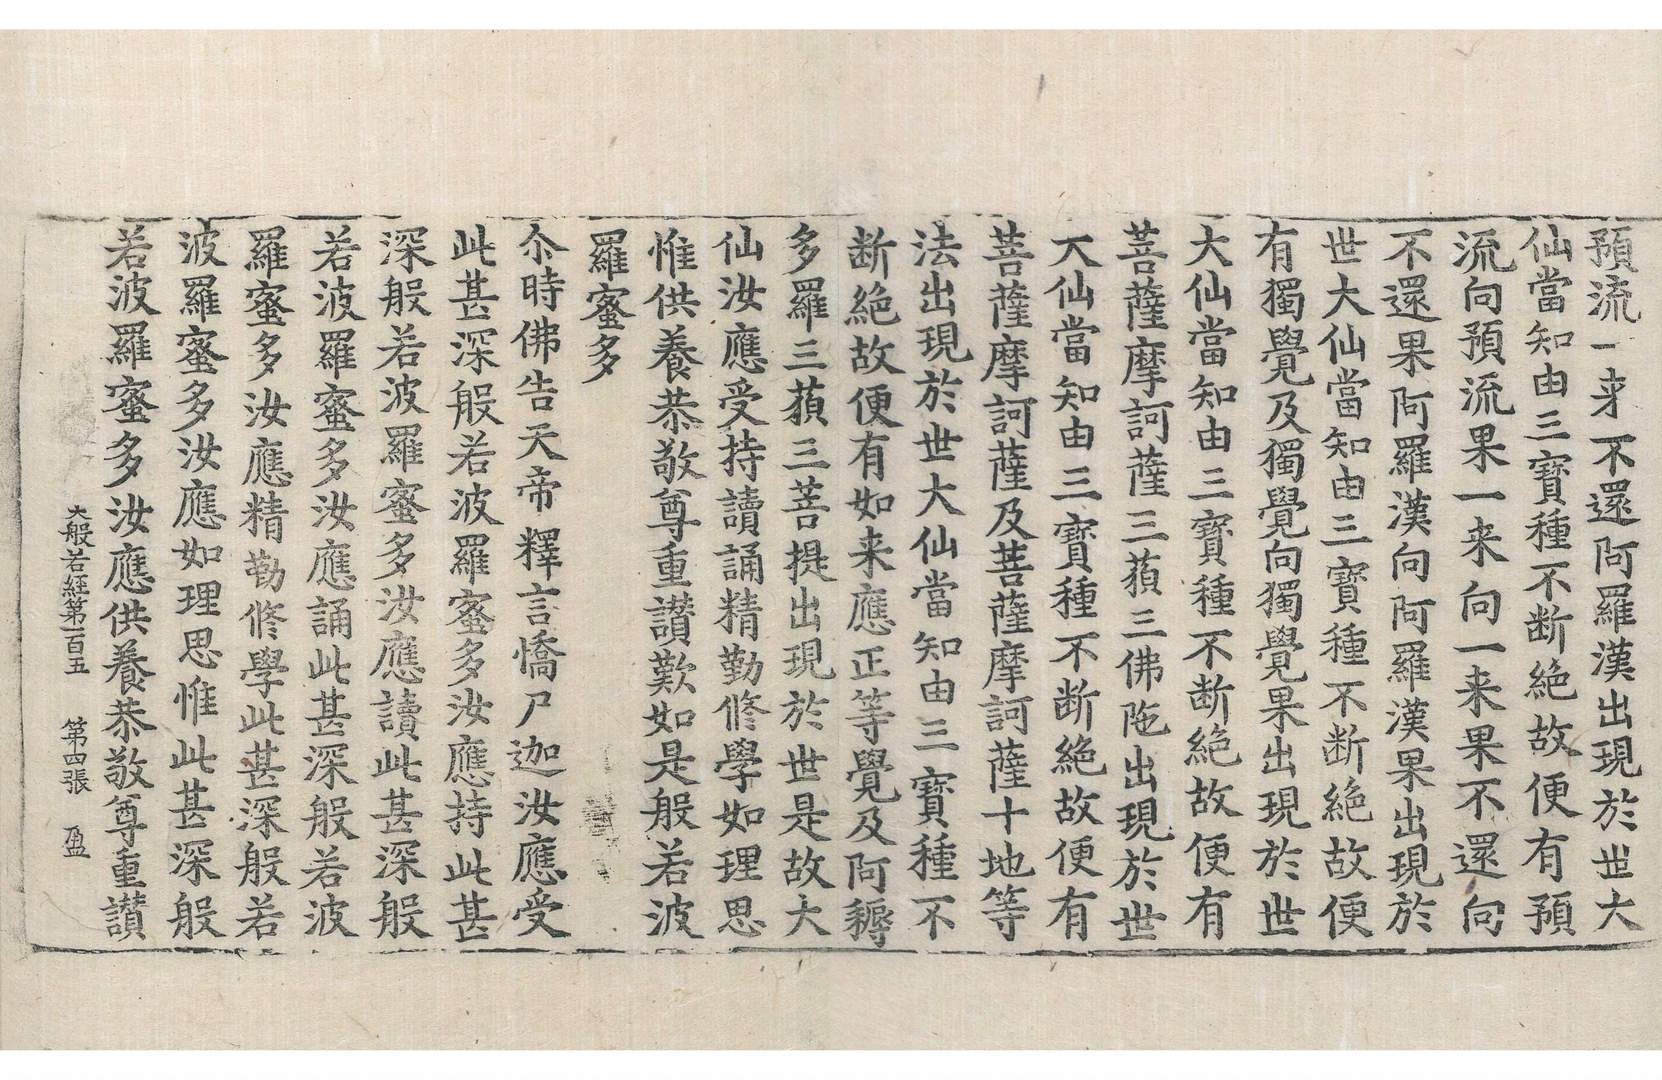 預流一来不還阿羅漢出現於世大
仙當知由三寶種不断絶故便有預
流向預流果一来向一来果不還向
不還果阿羅漢向阿羅漢果出現於
世大仙當知由三寶種不断絶故便
有獨覺及獨覺向獨覺果出現於世
大仙當知由三寶種不断絶故便有
菩薩摩訶薩三藐三佛陁出現於世
大仙當知由三寶種不断絶故便有
菩薩摩訶薩及菩薩摩訶薩十地等
法出現於世大仙當知由三寶種不
断絶故便有如来應正等覺及阿耨
多羅三藐三菩提出現於世是故大
仙汝應受持讀誦精勤修學如理思
惟供養恭敬尊重讃歎如是般若波
羅蜜多
尒時佛告天帝釋言憍尸迦汝應受
此甚深般若波羅蜜多汝應持此甚
深般若波羅蜜多汝應讀此甚深般
若波羅蜜多汝應誦此甚深般若波
羅蜜多汝應精勤修學此甚深般若
波羅蜜多汝應如理思惟此甚深般
若波羅蜜多汝應供養恭敬尊重讃
大般若經第一百五 第四張 盈